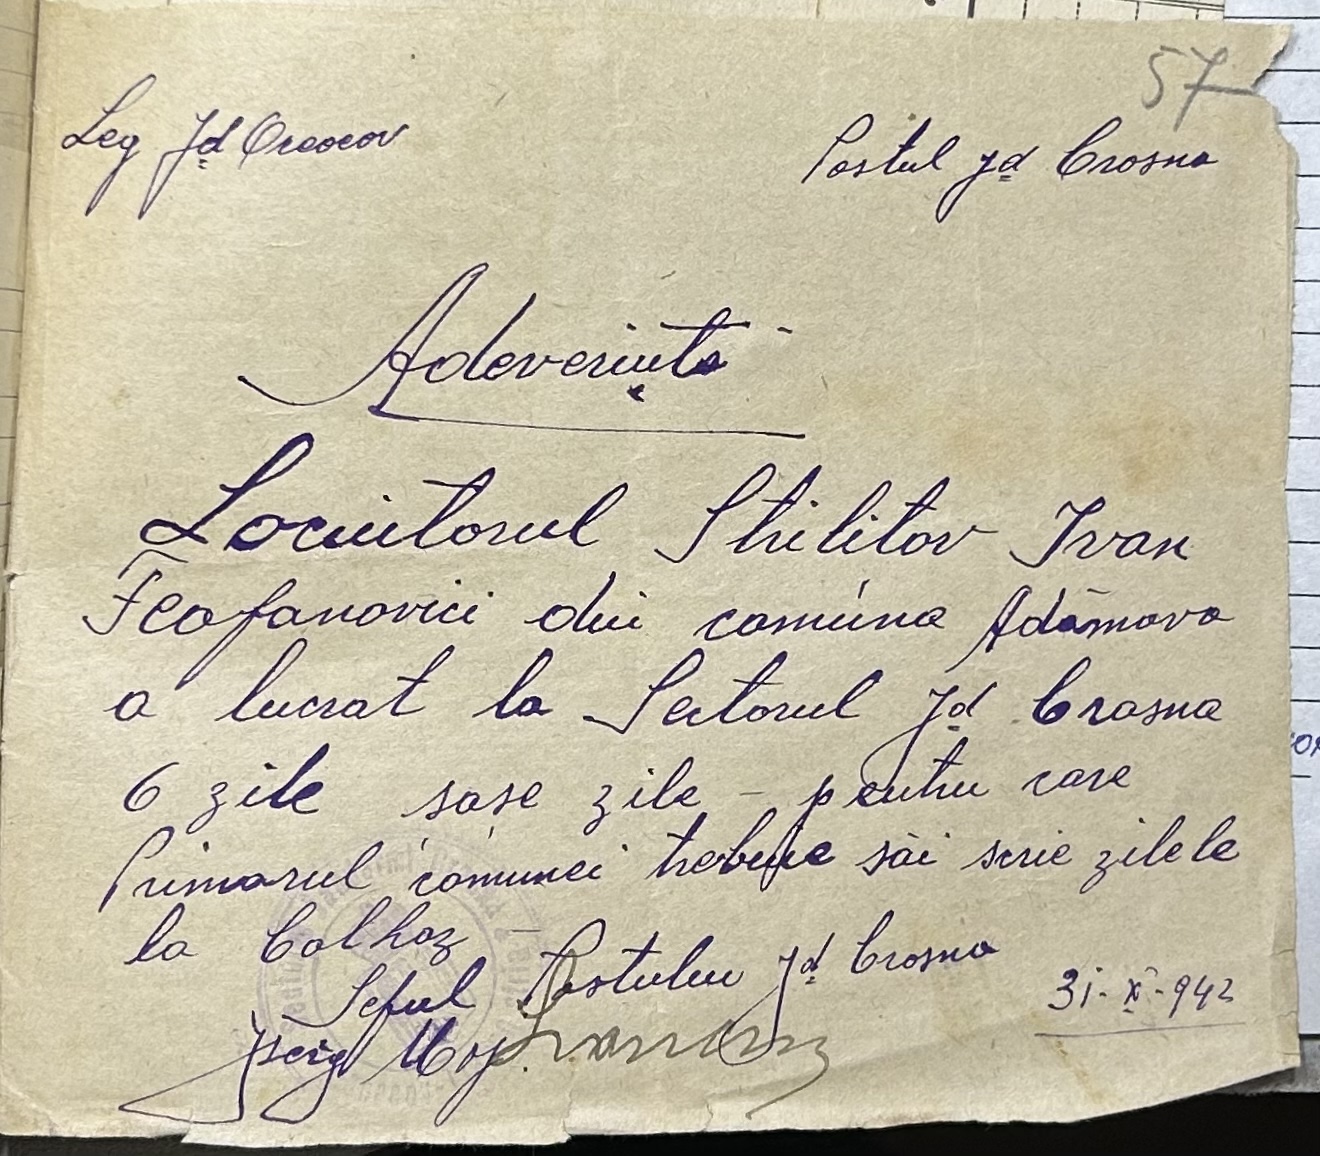 57
Leg Jd Oceacov
Postul Jd Crosna
Adeverință
Locuitorul Strilitov Ivan
Feofanovici din comuna Adămova
a lucrat la Sectorul Jd Crasna
6 zile sase zile – pentru care
Primarul comunei trebuie săi scrie zilele
la Colhoz –
Seful Postului Jd Crosna
31-X-942
Maj.